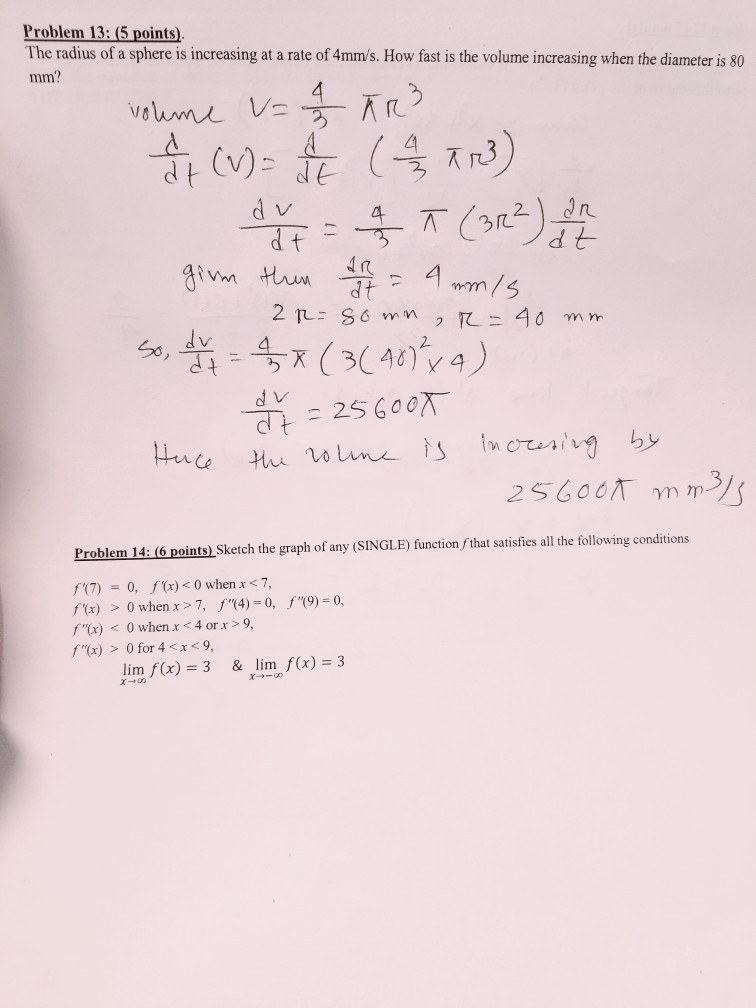 Problem 13: (5 points).
The radius of a sphere is increasing at a rate of 4mm/s. How fast is the volume increasing when the diameter is 80
mm?
volume V = 4/3 πr³
d/dt (v) = d/dt (4/3 πr³)
dv/dt = 4/3 π (3r²) dr/dt
given then dr/dt = 4 mm/s
2r = 80 mm, r = 40 mm
So, dv/dt = 4/3 π (3(40)² × 4)
dv/dt = 25600π
Hence the volume is incresing by
25600π mm³/s
Problem 14: (6 points) Sketch the graph of any (SINGLE) function f that satisfies all the following conditions
f'(7) = 0, f'(x) < 0 when x < 7,
f'(x) > 0 when x > 7, f''(4) = 0, f''(9) = 0,
f''(x) < 0 when x < 4 or x > 9,
f''(x) > 0 for 4 < x < 9,
lim x→∞ f(x) = 3 & lim x→-∞ f(x) = 3